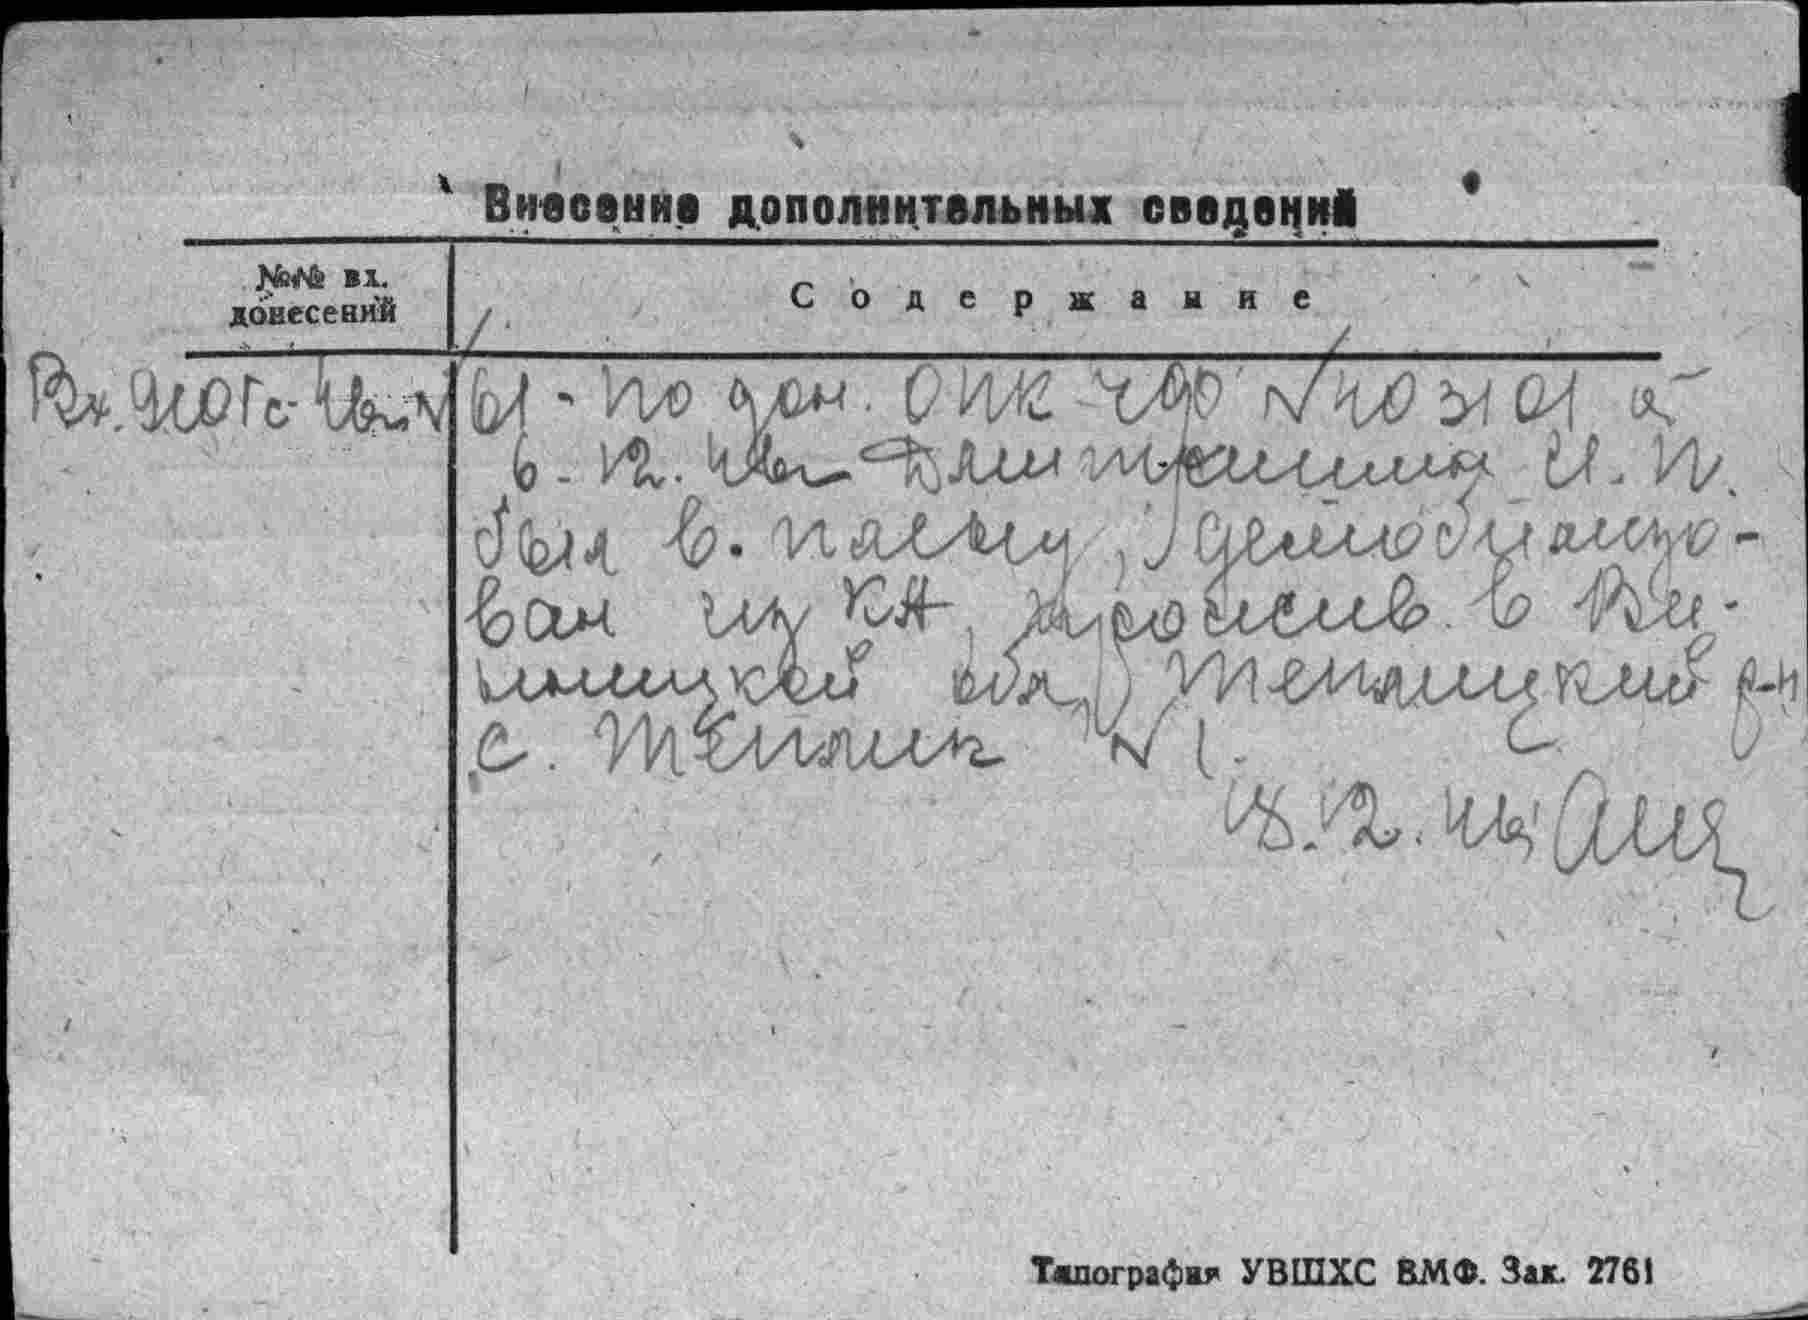 Внесение дополнительных сведений
№№ вх. донесений
Содержание
Вх. 46г.
61 - по дон. ОПК ЧФ № 403101 от
6.12.46г. И.П.
был в плену, демобилизо-
ван из КА, прожив. в Ви-
нницкой обл, Теплицкий р-н
с. Теплик №1.
18.12.46г
Типография УВШХС ВМФ. Зак. 2761